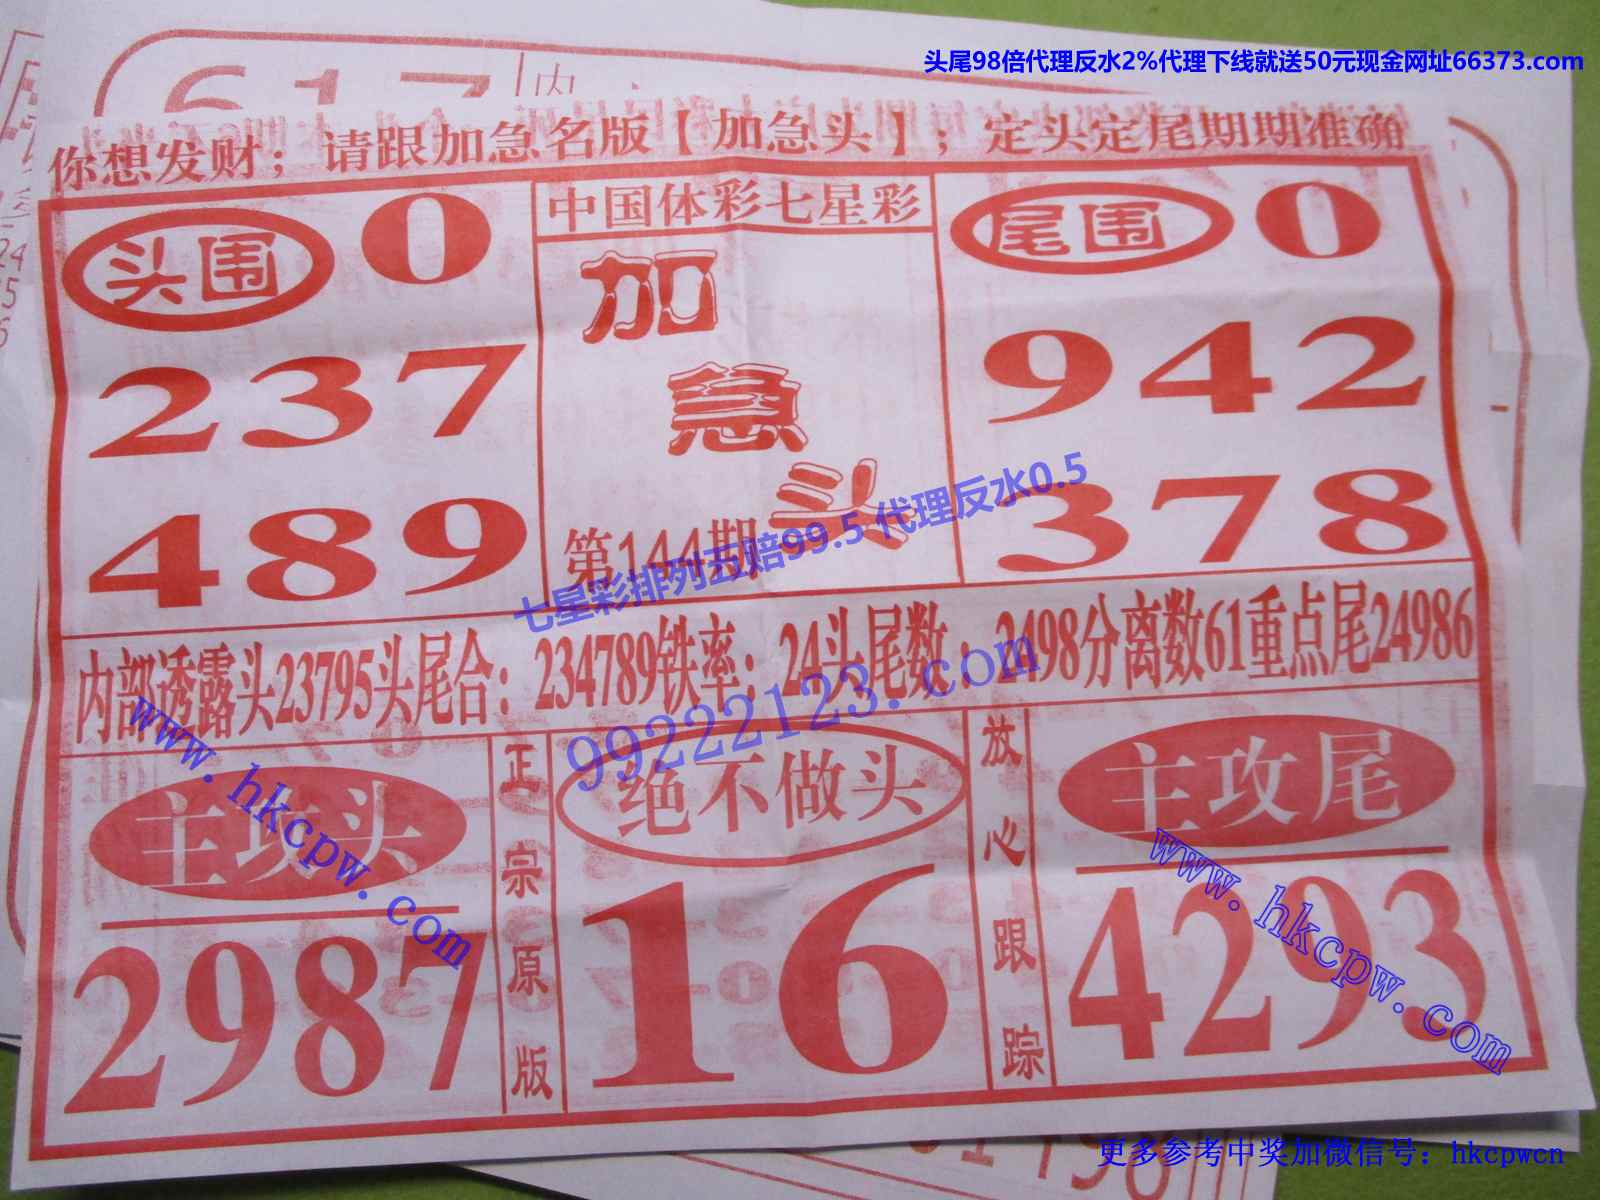 头尾98倍代理反水2%代理下线就送50元现金网址66373.com
617
你想发财；请跟加急名版【加急头】；定头定尾期期准确
头围 0
237
489
中国体彩七星彩
加
急
头
第144期
尾围 0
942
378
七星彩排列五赔99.5 代理反水0.5
内部透露头23795头尾合：234789铁率；24头尾数：2498分离数61重点尾24986
99222123.com
主攻头
2987
正宗原版
绝不做头
16
放心跟踪
主攻尾
4293
www.hkcpw.com
www.hkcpw.com
更多参考中奖加微信号：hkcpwcn